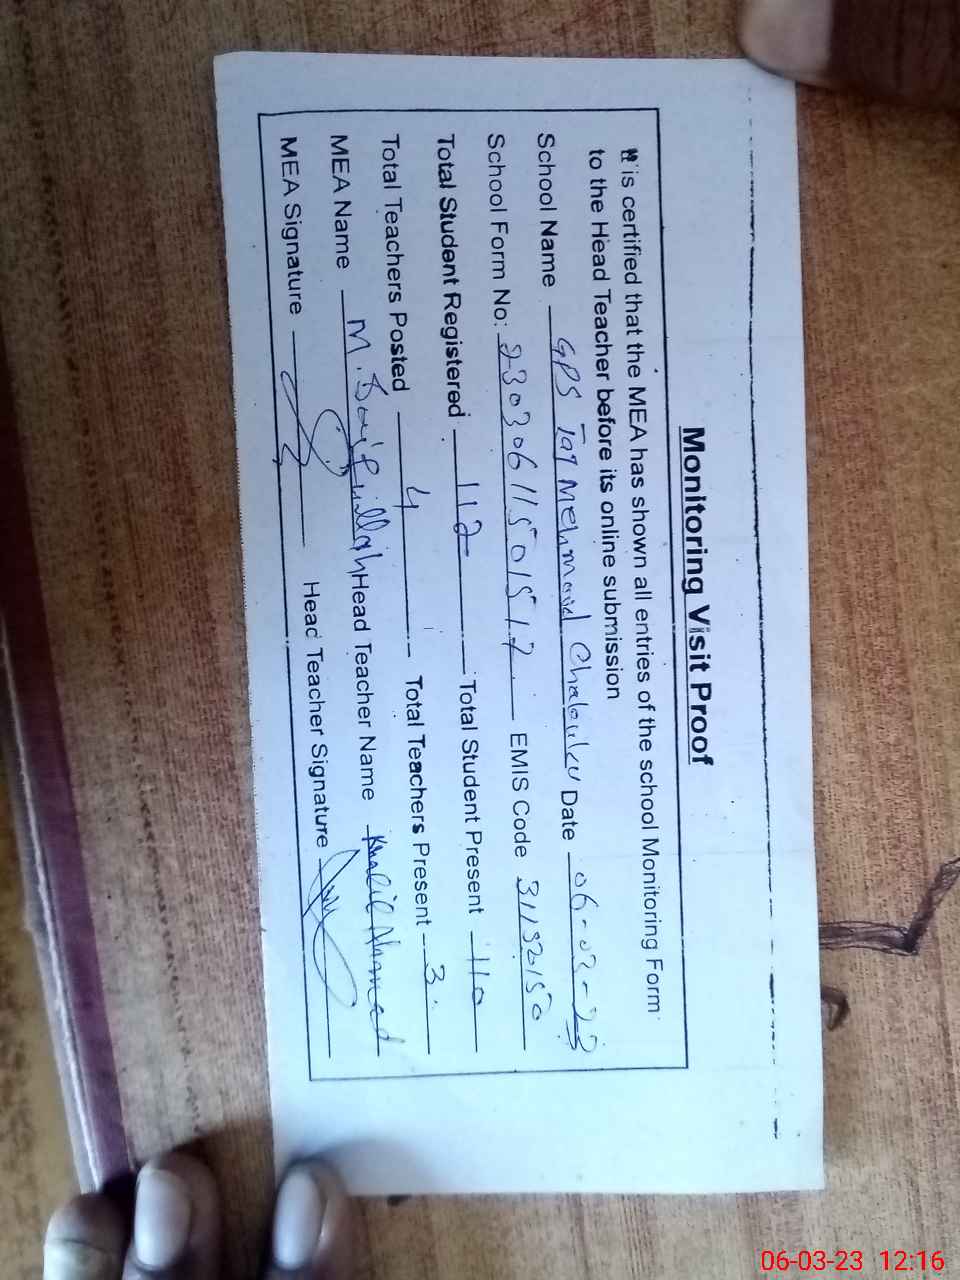 Monitoring Visit Proof
It is certified that the MEA has shown all entries of the school Monitoring Form
to the Head Teacher before its online submission
School Name GPS Taj Mehmood Date 06-03-23
School Form No: 23030611501517 EMIS Code 31132150
Total Student Registered 112 Total Student Present 110
Total Teachers Posted 4 Total Teachers Present 3
MEA Name M. Head Teacher Name Khalil Ahmed
MEA Signature Head Teacher Signature
06-03-23 12:16